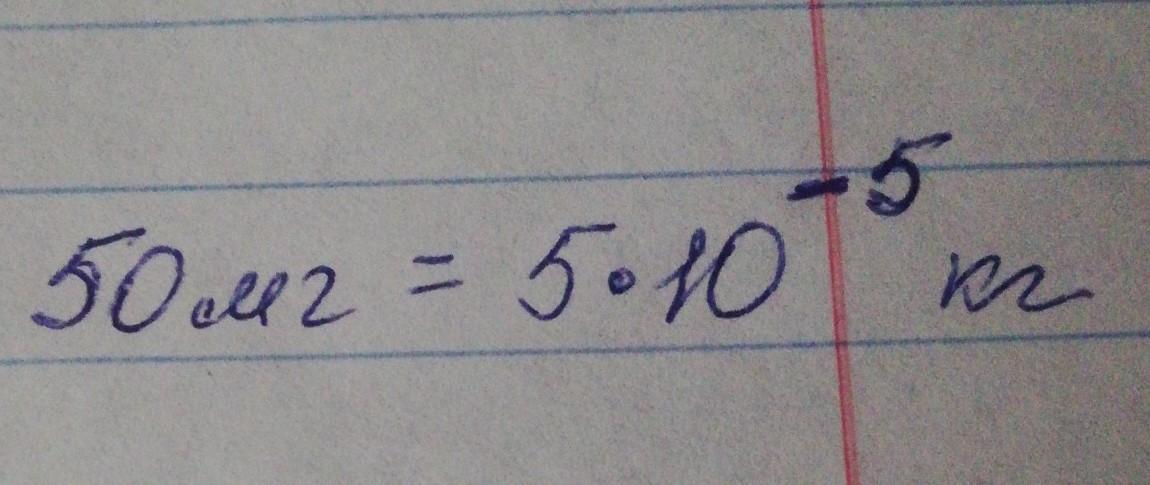 50 мг = 5·10⁻⁵ кг